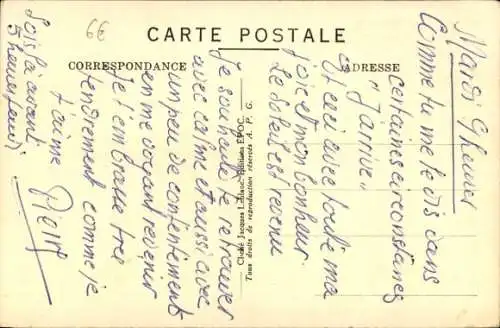 CARTE POSTALE
CORRESPONDANCE
ADRESSE
Cliché Jacques Editions EPOC.
Tous droits de reproduction réservés A. P. G.
Mardi 9 heures
Comme tu me le dis dans
certaines circonstances
"J'arrive"
Et ceci avec toute ma
joie et mon bonheur
Le soleil est revenu
Je souhaite te retrouver
avec calme et aussi avec
un peu de contentement
en me voyant revenir
Je t'embrasse très
tendrement comme je
t'aime
Sois là avant
5 heures